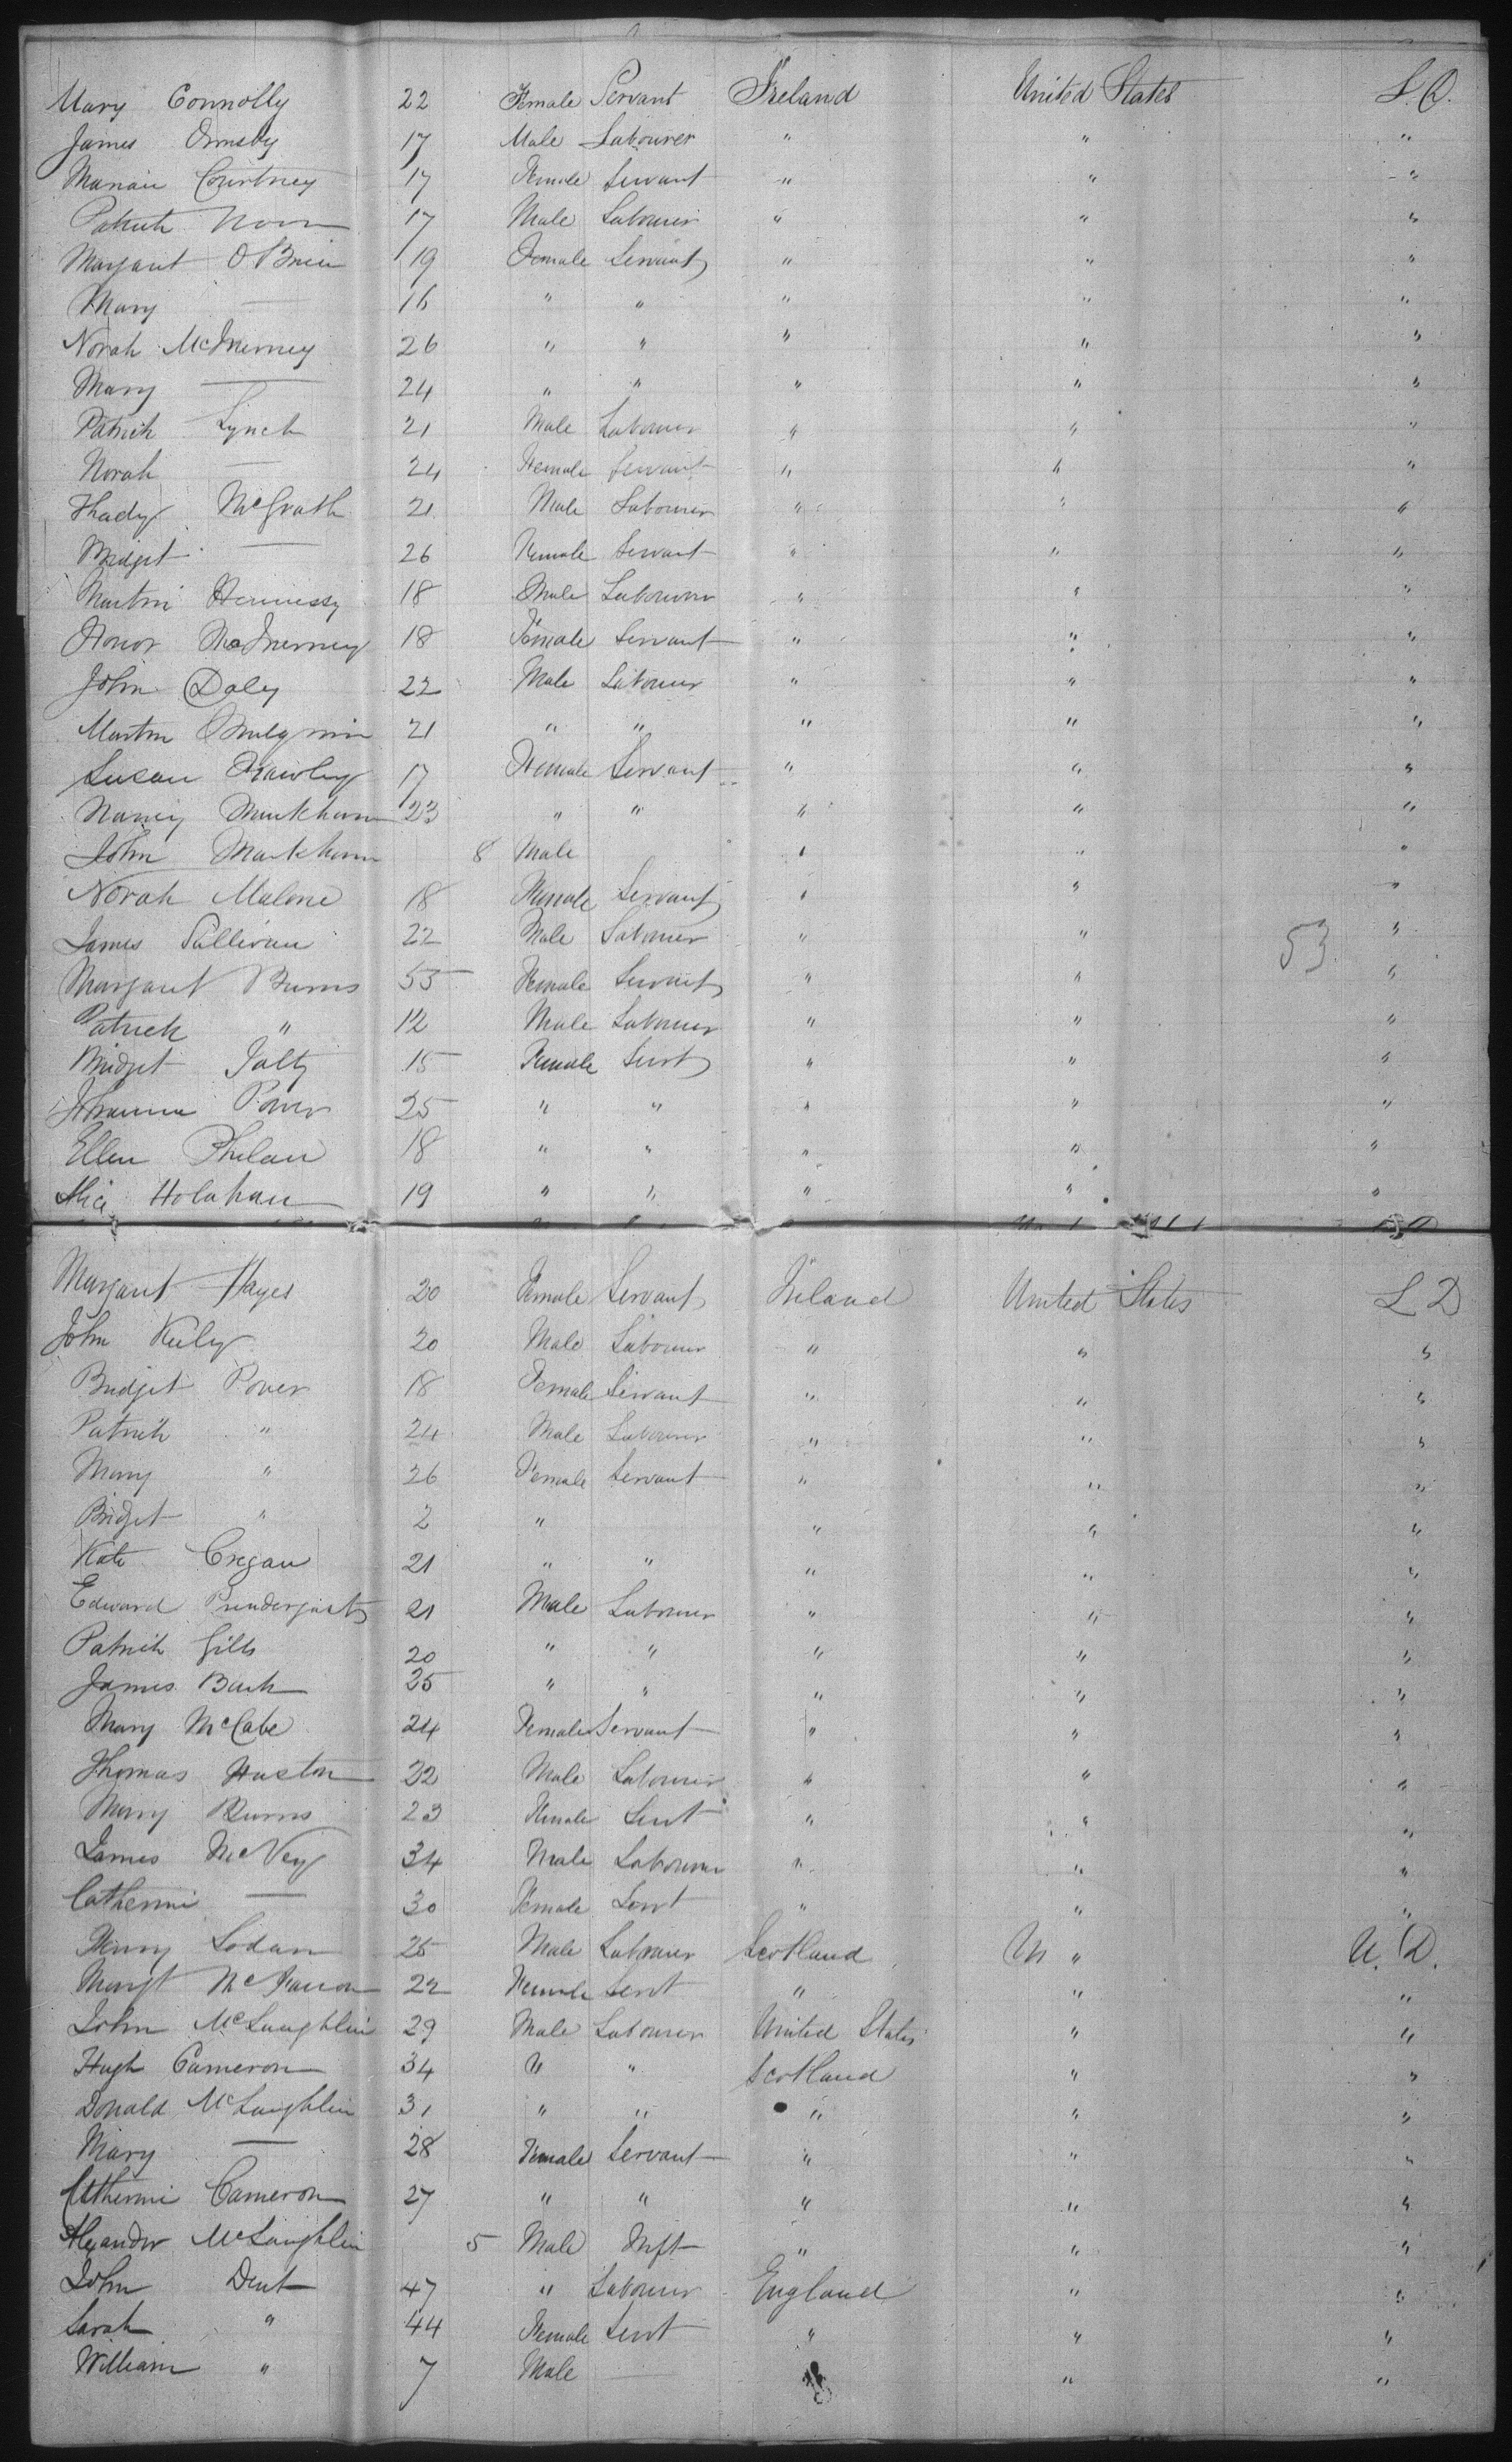 Mary Connolly 22 Female Servant Ireland United States L.D.
James Ormsby 17 Male Labourer " " "
Courtney 17 Female Servant " " "
17 Male Labourer " " "
Margaret O'Brien 19 Female Servant " " "
Mary — 16 " " " " "
Norah McInerney 26 " " " " "
Mary — 24 " " " " "
Patrick Lynch 21 Male Labourer " " "
Norah — 24 Female Servant " " "
Thady McGrath 21 Male Labourer " " "
Bridget — 26 Female Servant " " "
Martin Hennessy 18 Male Labourer " " "
Honor McInerney 18 Female Servant " " "
John Daly 22 Male Labourer " " "
Martin 21 " " " " "
Susan Frawley 17 Female Servant " " "
Nancy Markham 23 " " " " "
John Markham 8 Male " " "
Norah Malone 18 Female Servant " " "
James Sullivan 22 Male Labourer " " 53 "
Margaret Burns 55 Female Servant " " "
Patrick " 12 Male Labourer " " "
Bridget 15 Female Servt " " "
Johanna Power 25 " " " " "
Ellen Phelan 18 " " " " "
Alice Holahan 19 " " " " "
Margaret Hayes 20 Female Servant Ireland United States L D
John Kiely 20 Male Labourer " " "
Bridget Power 18 Female Servant " " "
Patrick " 24 Male Labourer " " "
Mary " 26 Female Servant " " "
Bridget " 2 " " " "
Kate Cregan 21 " " " " "
Edward Prendergast 21 Male Labourer " " "
Patrick 20 " " " " "
James 25 " " " " "
Mary McCabe 24 Female Servant " " "
Thomas Huston 22 Male Labourer " " "
Mary Burns 23 Female Servt " " "
James McVey 34 Male Labourer " " "
Catherine — 30 Female Servt " " "
Henry 25 Male Labourer Scotland " U.D.
Margt 22 Female Servt " " "
John McLaughlin 29 Male Labourer United States " "
Hugh Cameron 34 " " Scotland " "
Donald McLaughlin 31 " " " " "
Mary — 28 Female Servant " " "
Catherine Cameron 27 " " " " "
Alexander McLaughlin 5 Male Inft " " "
John Dent 47 " Labourer England " "
Sarah " 44 Female Servt " " "
William " 7 Male — " " "